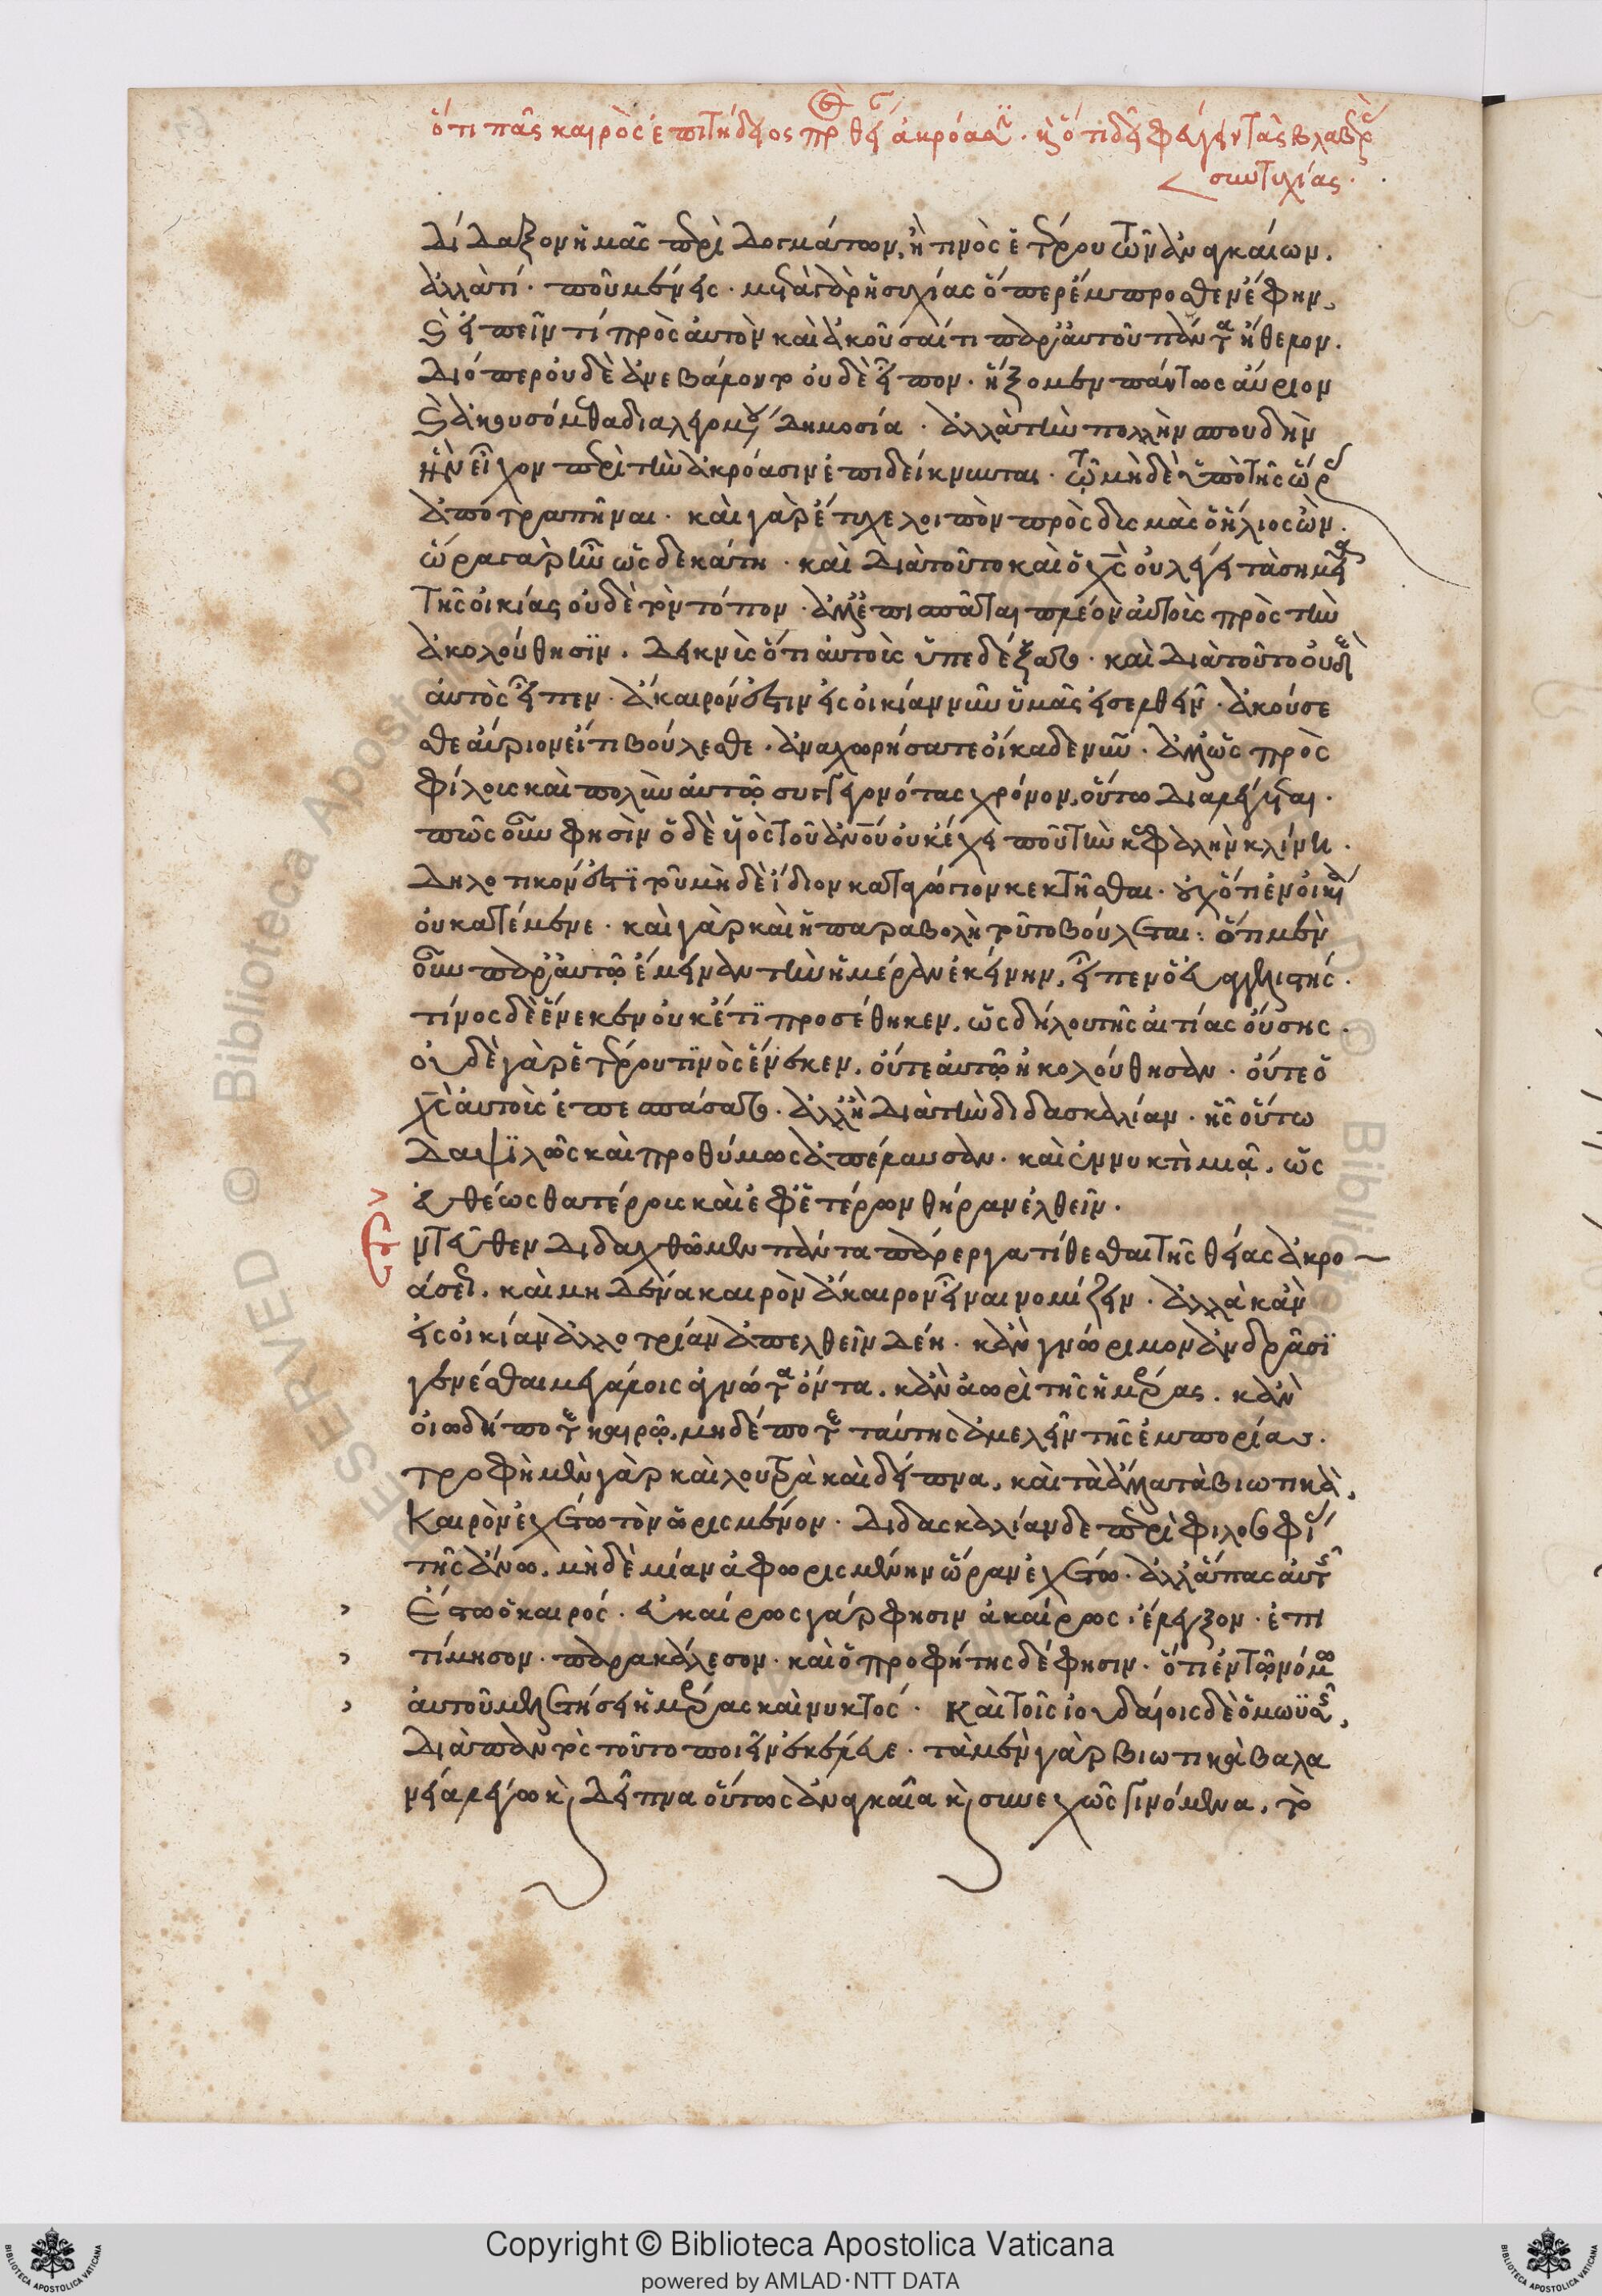 ὅτι πᾶς καιρὸς ἐπιτήδειος πρὸς θείαν ἀκρόασιν. καὶ ὅτι δεῖ φεύγειν τὰς βλαβερὰς
συντυχίας.
Δίδαξον ἡμᾶς περὶ δογμάτων, ἢ τινὸς ἑτέρου τῶν ἀναγκαίων.
ἀλλὰ τί. ποῦ μένεις. μετὰ γὰρ ἡσυχίας ὅπερ ἔμπροσθεν ἔφην,
καὶ εἰπεῖν τί πρὸς αὐτὸν καὶ ἀκοῦσαί τι παρ' αὐτοῦ πάντα ἤθελον.
Διόπερ οὐδὲ ἀνεβάλοντο οὐδὲ εἶπον. ἥξομεν πάντως αὔριον
καὶ ἀκουσόμεθα διαλεγομένου δημοσία. ἀλλὰ τὴν πολλὴν σπουδὴν
ἣν εἶχον περὶ τὴν ἀκρόασιν ἐπιδείκνυνται. τῷ μηδὲ ὑπὸ τῆς ὥρας
ἀποτραπῆναι. καὶ γὰρ ἔτυχε λοιπὸν πρὸς δυσμὰς ὁ ἥλιος ὤν.
ὥρα γὰρ ἦν ὡς δεκάτη. καὶ διὰ τοῦτο καὶ ὁ χς οὐ λέγει τὰ σημεῖα
τῆς οἰκίας οὐδὲ τὸν τόπον. ἀλλ' ἐπισπᾶται πλέον αὐτοὺς πρὸς τὴν
ἀκολούθησιν. Δεικνὺς ὅτι αὐτοὺς ὑπεδέξατο. καὶ διὰ τοῦτο οὐδὲ
αὐτὸς εἶπεν. ἄκαιρόν ἐστιν εἰς οἰκίαν νῦν ὑμᾶς εἰσελθεῖν. ἀκούσε
σθε αὔριον εἴ τι βούλεσθε. ἀναχωρήσατε οἴκαδε νῦν. ἀλλ' ὡς πρὸς
φίλους καὶ πολὺν αὐτῷ συγγεγονότας χρόνον, οὕτω διαλέγεται.
πῶς οὖν φησὶν ὁ δὲ υἱὸς τοῦ ἀνου οὐκ ἔχει ποῦ τὴν κεφαλὴν κλίνῃ.
Δηλωτικόν ἐστι τοῦ μηδὲ ἴδιον καταγώγιον κεκτῆσθαι. οὐχ ὅτι ἐν οἰκίᾳ
οὐ κατέμενε. καὶ γὰρ καὶ ἡ παραβολὴ τοῦτο βούλεται. ὅτι μὲν
οὖν παρ' αὐτῷ ἔμειναν τὴν ἡμέραν ἐκείνην, εἶπεν ὁ εὐαγγελιστής.
τίνος δὲ ἕνεκεν οὐκέτι προσέθηκεν. ὡς δήλου τῆς αἰτίας οὔσης.
οὐδὲ γὰρ ἑτέρου τινὸς ἕνεκεν, οὔτε αὐτῷ ἠκολούθησαν. οὔτε ὁ
χς αὐτοὺς ἐπεσπάσατο. ἀλλ' ἢ διὰ τὴν διδασκαλίαν. ἧς οὕτω
δαψιλῶς καὶ προθύμως ἀπέλαυσαν. καὶ ἐν νυκτὶ μιᾷ, ὡς
εὐθέως θατέρους καὶ ἐφ' ἑτέρων θήραν ἐλθεῖν.
Ἐντεῦθεν διδαχθῶμεν πάντα πάρεργα τίθεσθαι τῆς θείας ἀκρο
άσεως. καὶ μηδένα καιρὸν ἄκαιρον εἶναι νομίζειν. ἀλλὰ κἂν
εἰς οἰκίαν ἀλλοτρίαν ἀπελθεῖν δέῃ. κἂν γνώριμον ἀνδράσι
γενέσθαι μεγάλοις ἀγνῶτα ὄντα. κἂν ἀωρὶ τῆς ἡμέρας. κἂν
οἱωδήποτε καιρῷ. μηδέποτε ταύτης ἀμελεῖν τῆς ἐμπορίας.
τροφὴ μὲν γὰρ καὶ λουτρὰ καὶ δεῖπνα, καὶ τὰ ἄλλα τὰ βιωτικὰ,
καιρὸν ἐχέτω τὸν ὡρισμένον. Διδασκαλίαν δὲ περὶ φιλοσοφίας
τῆς ἄνω, μηδὲ μίαν ἀφωρισμένην ὥραν ἐχέτω. ἀλλ' ἅπας αὐτῆς
ἔστω ὁ καιρός. εὐκαίρως γάρ φησιν ἀκαίρως. ἔλεγξον. ἐπι
τίμησον. παρακάλεσον. καὶ ὁ προφήτης δέ φησιν. ὅτι ἐν τῷ νόμῳ
αὐτοῦ μελετήσει ἡμέρας καὶ νυκτός. Καὶ τοῖς ἰουδαίοις δὲ ὁ μωϋσῆς,
διὰ παντὸς τοῦτο ποιεῖν ἐκέλευε. τὰ μὲν γὰρ βιωτικὰ βαλα
νεῖα λέγω καὶ δεῖπνα οὕτως ἀναγκαῖα καὶ συνεχῶς γινόμενα, τὸ